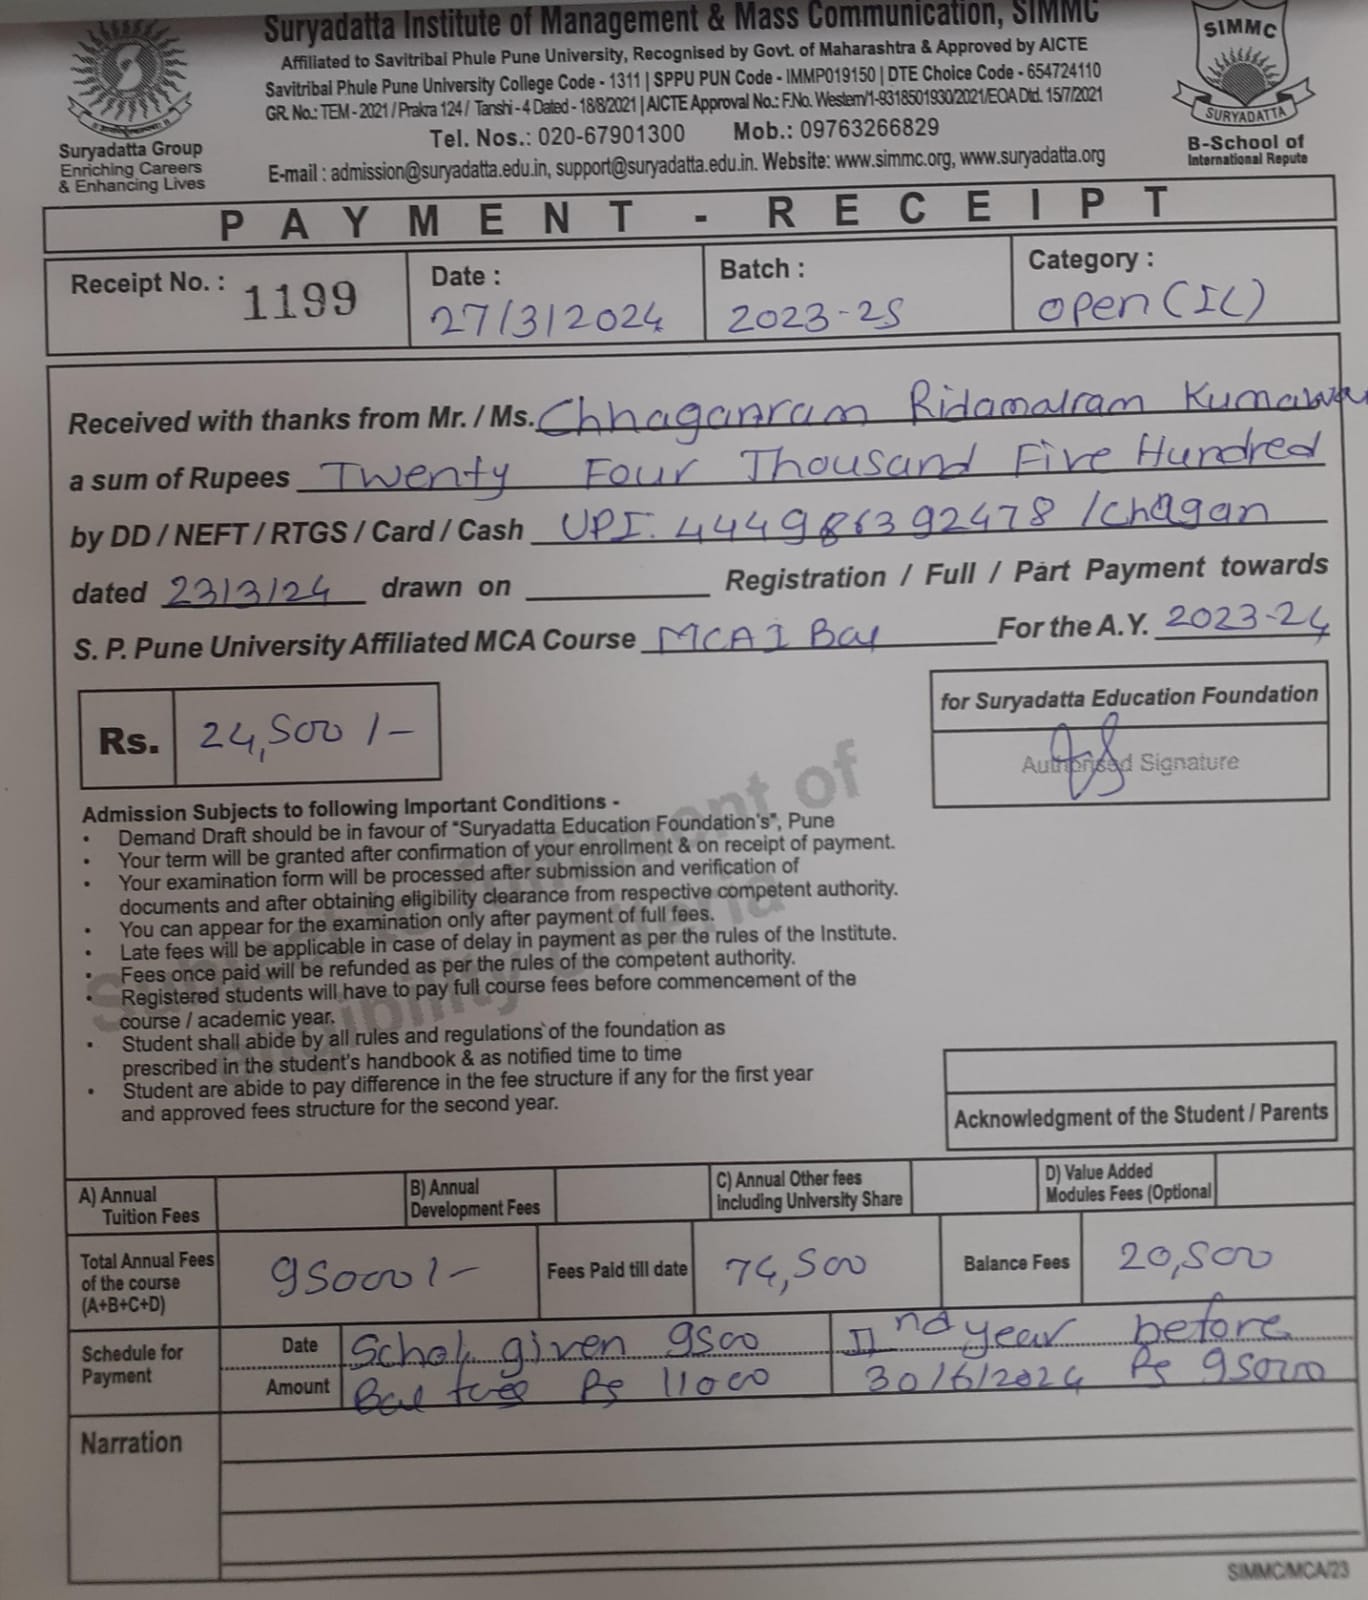 Suryadatta Institute of Management & Mass Communication, SIMMC
Affiliated to Savitribai Phule Pune University, Recognised by Govt. of Maharashtra & Approved by AICTE
Savitribai Phule Pune University College Code - 1311 | SPPU PUN Code - IMMP019150 | DTE Choice Code - 654724110
GR. No.: TEM - 2021 / Prakra 124 / Tanshi - 4 Dated - 18/8/2021 | AICTE Approval No.: F.No. Western/1-9318501930/2021/EOA Dtd. 15/7/2021
Tel. Nos.: 020-67901300 Mob.: 09763266829
E-mail : admission@suryadatta.edu.in, support@suryadatta.edu.in. Website: www.simmc.org, www.suryadatta.org
Suryadatta Group
Enriching Careers
& Enhancing Lives
SIMMC
SURYADATTA
B-School of
International Repute
PAYMENT - RECEIPT
Receipt No. : 1199
Date :
27/3/2024
Batch :
2023-25
Category :
open (IL)
Received with thanks from Mr. / Ms. Chhaganram Ridamalram
a sum of Rupees Twenty Four Thousand Five Hundred
by DD / NEFT / RTGS / Card / Cash UPI. 444986392478 /chagan
dated 23/3/24 drawn on Registration / Full / Part Payment towards
S. P. Pune University Affiliated MCA Course MCA I Bal For the A.Y. 2023-24
Rs. 24,500/-
for Suryadatta Education Foundation
Authorised Signature
Subject to fulfillment of
eligibility criteria
Admission Subjects to following Important Conditions -
• Demand Draft should be in favour of "Suryadatta Education Foundation's", Pune
• Your term will be granted after confirmation of your enrollment & on receipt of payment.
• Your examination form will be processed after submission and verification of
documents and after obtaining eligibility clearance from respective competent authority.
• You can appear for the examination only after payment of full fees.
• Late fees will be applicable in case of delay in payment as per the rules of the Institute.
• Fees once paid will be refunded as per the rules of the competent authority.
• Registered students will have to pay full course fees before commencement of the
course / academic year.
• Student shall abide by all rules and regulations of the foundation as
prescribed in the student's handbook & as notified time to time
• Student are abide to pay difference in the fee structure if any for the first year
and approved fees structure for the second year.
Acknowledgment of the Student / Parents
A) Annual
Tuition Fees
B) Annual
Development Fees
C) Annual Other fees
including University Share
D) Value Added
Modules Fees (Optional
Total Annual Fees
of the course
(A+B+C+D)
95000/-
Fees Paid till date
74,500
Balance Fees
20,500
Schedule for
Payment
Date
Schol. given 9500
IInd year before
Amount
Bal fees Rs 11000
30/6/2024 Rs 95000
Narration
SIMMC/MCA/23